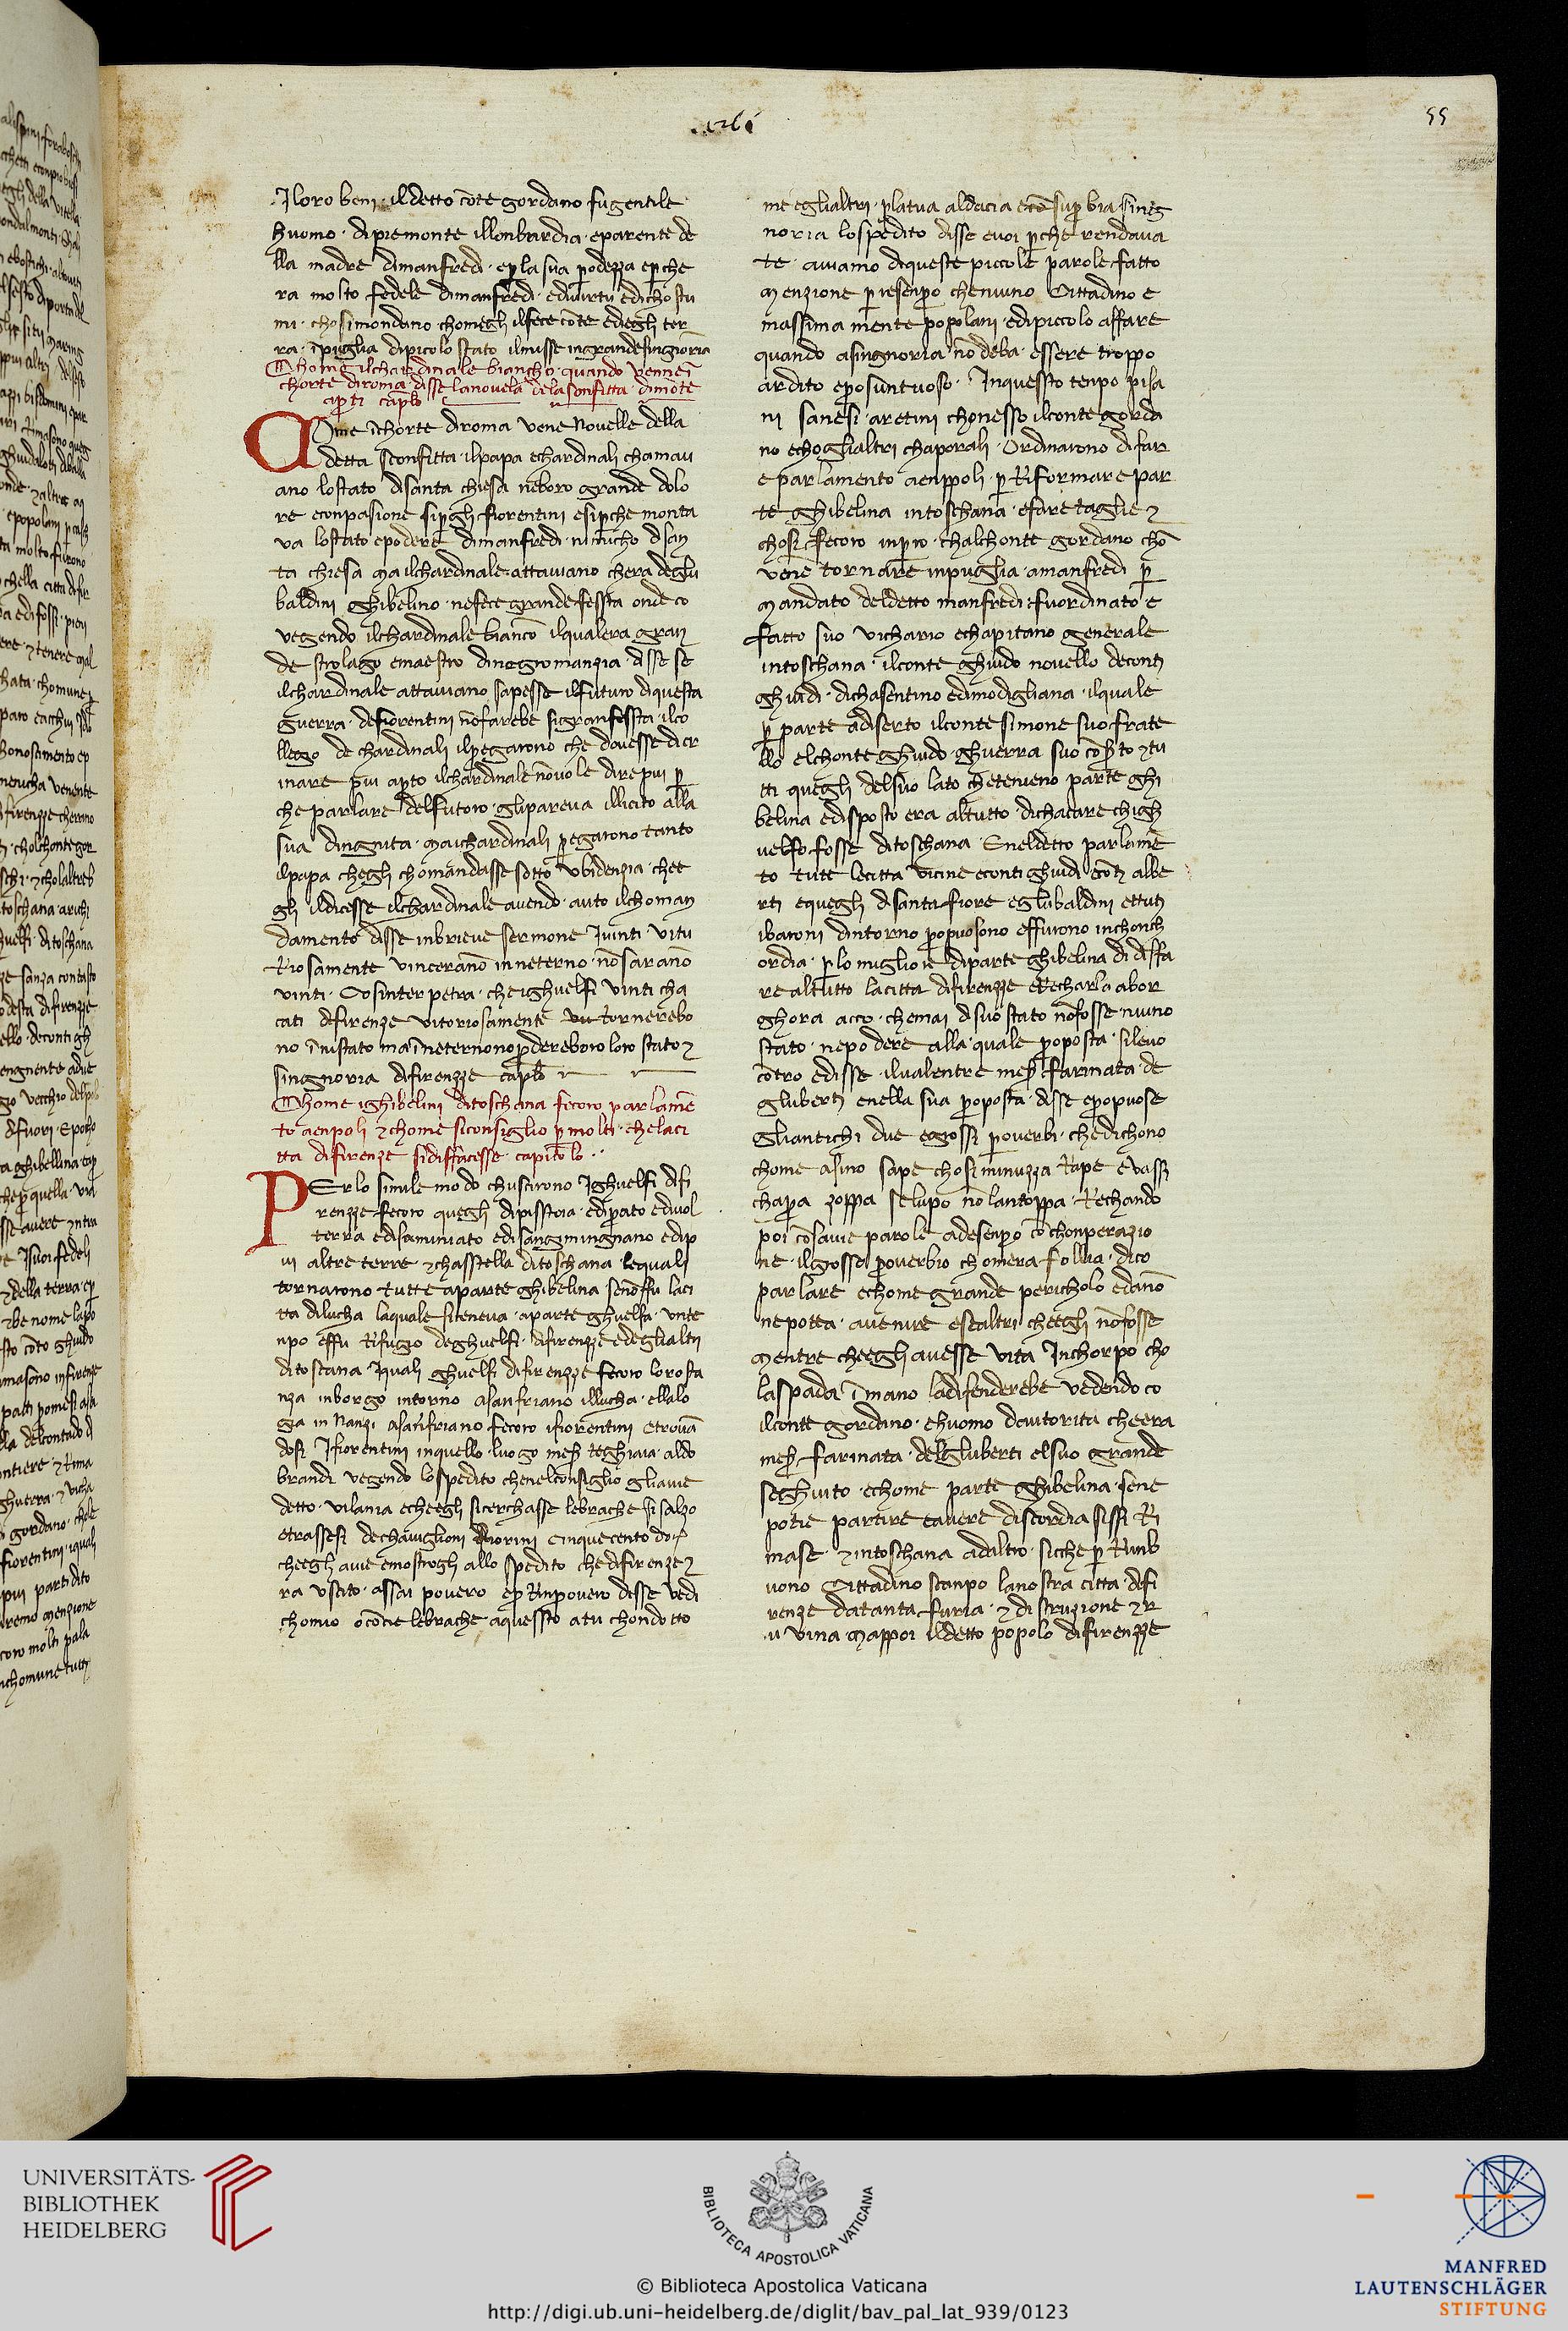 .126i
55
Iloro beni · ildetto cōte gordano fugentile
huomo · dipiemonte illonbardia · eparente de
lla madre dimanfredi · eꝑ lasua ꝓdezza eꝑche
ra molto fedele dimanfredi · edivirtu edichostu
mi · chosimondano chomegli ilfece cōte edegli ter
ra · īpuglia dipicolo stato ilmisse ingrandesingioria
Chome ilchardinale biancho · quando vennei
chorte diroma disse lanovela delasonfitta · dimōte
aꝑti capł̄o
COme īchorte diroma vene novelle della
detta sconfitta · ilpapa echardinali chamau
ano lostato disanta chiesa neboro grande dolo
re econpasione siꝑgli fiorentini esiꝑche monta
va lostato epodere dimanfredi · nimicho disan
ta chiesa mailchardinale attaviano chera degliu
baldini ghibelino · nefece grande fessta onde co
vegendo ilchardinale biancō ilqualera gran
de strolago emaestro dinegromanzia · disse se
ilchardinale attaviano sapesse ilfuturo diquesta
guerra · defiorentini nōfarebe sigranfessta · ilco
llego de chardinali ilpegarono che dovesse dicr
inare piu aꝑto ilchardinale nōvole dire piu ꝑ
che parlare delfuturo · glipareva illicito alla
sua dingnita · maichardinali pegarono tanto
ilpapa chegli chomandasse sotto ubidenzia · chee
gli ildicesse ilchardinale avendo · auto ilchoman
damento disse inbrieve sermone Ivinti · vitu
Riosamente vinceranō inneterno · nōsaranō
vinti · Cosinterpetra · cheighuelfi vinti cha
cati difirenze vitoriosamente tornerebo
no īnistato ma īneternonoꝑdereboro loro stato ⁊
singnoria difirenzze capł̄o
Chome ighibelini ditoschana fecoro parlamē
to aenpoli ⁊chome siconsiglio ꝑmolti · chelaci
tta difirenze sidisfacesse · capitolo · ·
PErlo simile modo chuscirono Ighuelfi difi
renzze fecoro quegli dipisstoia · ediprato edivol
terra edisaminiato edisangimingnano edip
iu altre terre ⁊chasstella ditoschana · lequali
tornarono tutte aparte ghibelina senōffu laci
tta dilucha laquale siteneva · aparte ghuelfa · unte
npo effu Rifugio deghuelfi · difirenzze edeglialtri
ditoscana Iquali ghuelfi difirenzze fecoro lorosta
nza inborgo intorno asanfriano illucha · ellalo
ga in nanzi asanfriano fecoro ifiorentini etrovā
dosi Ifiorentini inquello · luogo meſſ teghiaia · aldo
brandi vegendo lospedito chenelconsiglio gliavie
detto · vilania echeegli sicerchasse lebrache si salzo
etrassesi dechāviglioni fiorini cinquecento doro
cheegli avie emostrogli allo spedito che difirenze ⁊
ra uscito · assai povero eꝑRinpovero disse vedi
chomio ocōcie lebrache aquessto atu chondotto
me eglialtri · ꝑlatua aldacia ecō suꝑbia · sineg
noria lospedito disse evoi ꝑche rendava
te · aviamo diqueste piccole parole · fatto
menzione ꝑ iesenpro cheniuno Cittadino e
massima mente popolani · edipiccolo affare
quando asingnoria nō deba · essere troppo
ardito eprosuntuoso · Inquessto tenpo pisa
ni sanesi aretini chonesso ilconte gorda
no echoglialtri chaporali · Ordinarono difar
e parlamento aenppoli · ꝑ Riformare par
te ghibelina intoschana · efare taglie ⁊
chosi fecoro inpro · chalchonte gordano chō
venē tornare inpuglia · amanfredi ꝑ
mandato deldetto manfredi : fuordinato e
fatto suo vichario echapitano generale
intoschana · ilconte ghuido novello deconti
ghuidi · dichasentino edimodigliana · ilquale
ꝑ parte adiserto ilconte simone suo frate
llo elchonte ghuido · ghuerra suo cōſto ⁊tu
tti quegli delsuo lato chetenieno parte ghi
belina edisposto era altutto · dichacare chigh
uelfo fosse ditoschana · Eneldetto parlamē
to tutte lecitta vicine econti ghuidi ecōti albe
rti equegli disanta fiore eglubaldini ettuti
ibaroni dintorno proposono effurono inchonch
ordia · ꝑlo migliore diparte ghibelina di disfa
re altutto lacitta difirenzze eRecharla abor
ghora acco · chemai disuo stato nōfosse · niuno
stato · nepo dere alla quale proposta · silevo
cōtro edisse · ilvalentre meſſ farinata · de
gluberti enella sua proposta · disse epropuose
gliantichi due egrossi proverbi · chedichono
chome asino sape chosi minuzza Rape evassi
chapra zoppa selupo nō lantoppa · Rechando
poi cōsavie parole adesenpro cōchonperazio
ne · ilgosso proverbio chomera follia · dico
parlare echome grande pericholo edanō
nepotea · avenire eseailtri cheegli nōfosse
mentre cheegli avesse vita Inchorpo cho
laspada īmano ladifenderebe vedendo co
ilconte gordino · ehuomo davtorita cheera
meſſ farinata · degluberti elsuo grande
seghuito · echome parte ghibelina · sene
potie partire eavere discordia sissi Ri
mase · ⁊intoschana adaltro · sicche ꝑ Runb
uono Cittadino scanpo lanostra citta · difi
renze datanta furia · ⁊di struzione ⁊r
u vina mappoi ildetto popolo difirenzze
UNIVERSITÄTS-
BIBLIOTHEK
HEIDELBERG
BIBLIOTECA APOSTOLICA VATICANA
© Biblioteca Apostolica Vaticana
http://digi.ub.uni-heidelberg.de/diglit/bav_pal_lat_939/0123
MANFRED
LAUTENSCHLÄGER
STIFTUNG